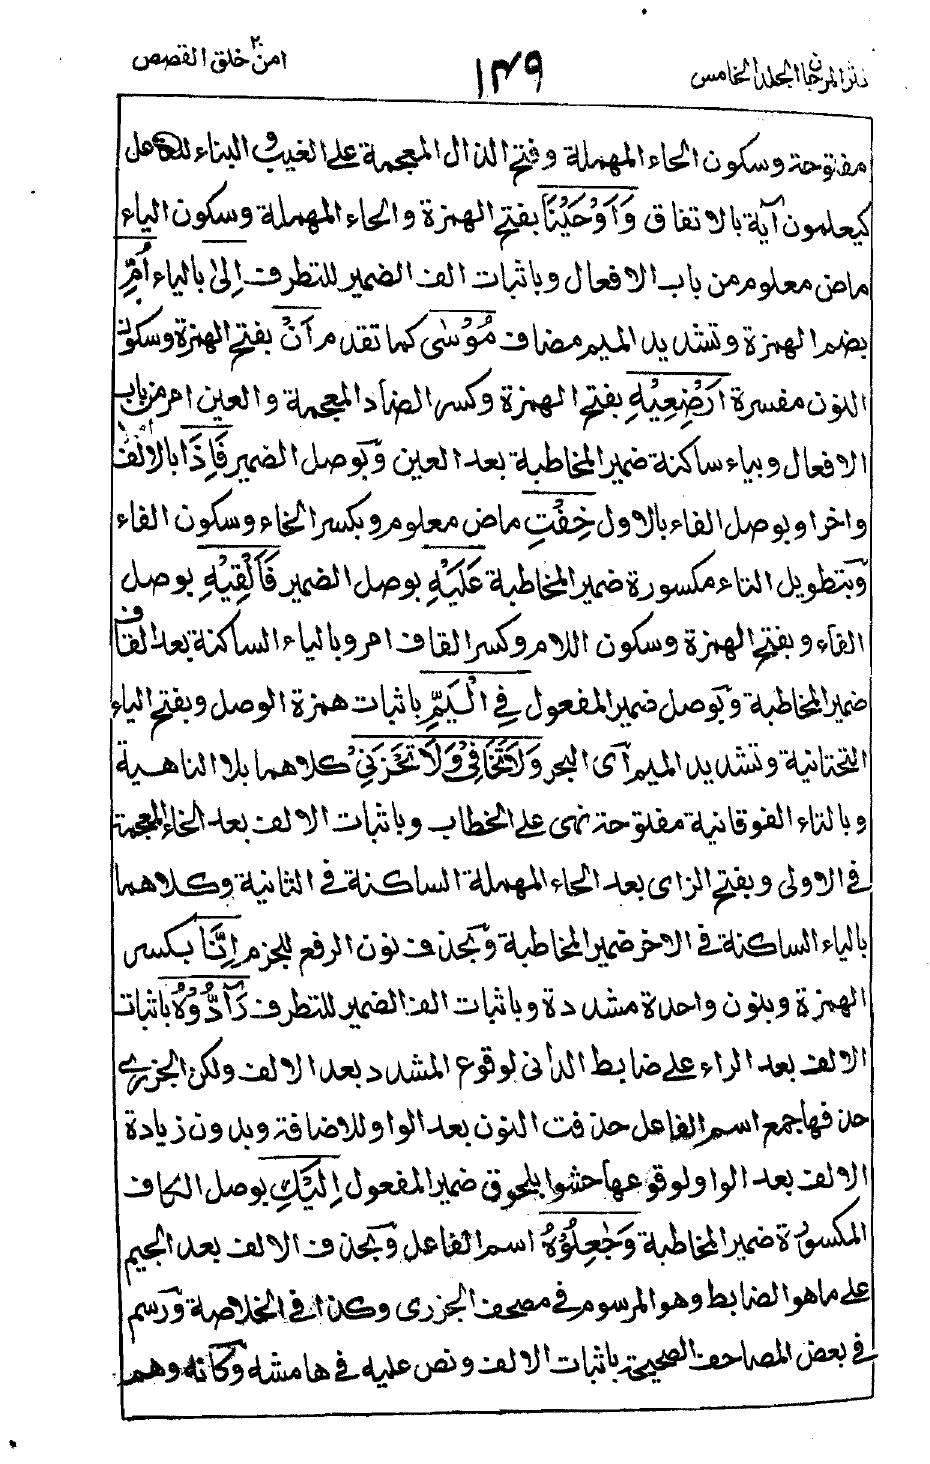 نثر المرجان المجلد الخامس
١٣٩
امن٢٠ خلق القصص
مفتوحة وسكون الحاء المهملة وفتح الذال المعجمة على الغيب والبناء للفاعل
كيعلمون آية بالاتفاق وَأَوْحَيْنَا بفتح الهمزة والحاء المهملة وسكون الياء
ماض معلوم من باب الافعال وباثبات الف الضمير للتطرف إِلىٰ بالياء أُمِّ
بضم الهمزة وتشديد الميم مضاف مُوْسٰى كما تقدم أَنْ بفتح الهمزة وسكون
النون مفسرة أَرْضِعِيْهِ بفتح الهمزة وكسر الضاد المعجمة والعين امر من باب
الافعال وبياء ساكنة ضمير المخاطبة بعد العين وبوصل الضمير فَإِذَا بالالف اولا
واخرا وبوصل الفاء بالاول خِفْتِ ماض معلوم وبكسر الخاء وسكون الفاء
وبتطويل التاء مكسورة ضمير المخاطبة عَلَيْهِ بوصل الضمير فَأَلْقِيْهِ بوصل
الفاء وبفتح الهمزة وسكون اللام وكسر القاف امر وبالياء الساكنة بعد القاف
ضمير المخاطبة وبوصل ضمير المفعول فِي الْيَمِّ باثبات همزة الوصل وبفتح الياء
التحتانية وتشديد الميم آى البحر وَلَا تَخَافِيْ وَلَا تَحْزَنِيْ كلاهما بلا الناهية
وبالتاء الفوقانية مفتوحة نهى على الخطاب وباثبات الالف بعد الخاء المعجمة
فى الاولى وبفتح الزاى بعد الحاء المهملة الساكنة فى الثانية وكلاهما
بالياء الساكنة فى الاخر ضمير المخاطبة وبحذف نون الرفع للجزم إِنَّا بكسر
الهمزة وبنون واحدة مشددة وباثبات الف الضمير للتطرف رَآدُّوْهُ باثبات
الالف بعد الراء على ضابط الدانى لوقوع المشدد بعد الالف ولكن الجزرى
حذفها جمع اسم الفاعل حذفت النون بعد الواو للاضافة وبدون زيادة
الالف بعد الواو لوقوعها حشوا بلحوق ضمير المفعول إِلَيْكِ بوصل الكاف
المكسورة ضمير المخاطبة وَجٰعِلُوْهُ اسم الفاعل وبحذف الالف بعد الجيم
على ما هو الضابط وهو المرسوم فى مصحف الجزرى وكذا فى الخلاصة ورسم
فى بعض المصاحف الصحيحة باثبات الالف ونص عليه فى هامشه وكانه وهم